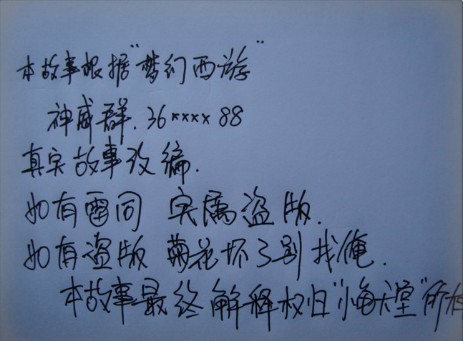 本故事根据"梦幻西游"
神威群.36××××88
真实故事改编.
如有雷同 实属盗版.
如有盗版 菊花坏了别找俺.
本故事最终解释权归"小天堂"所